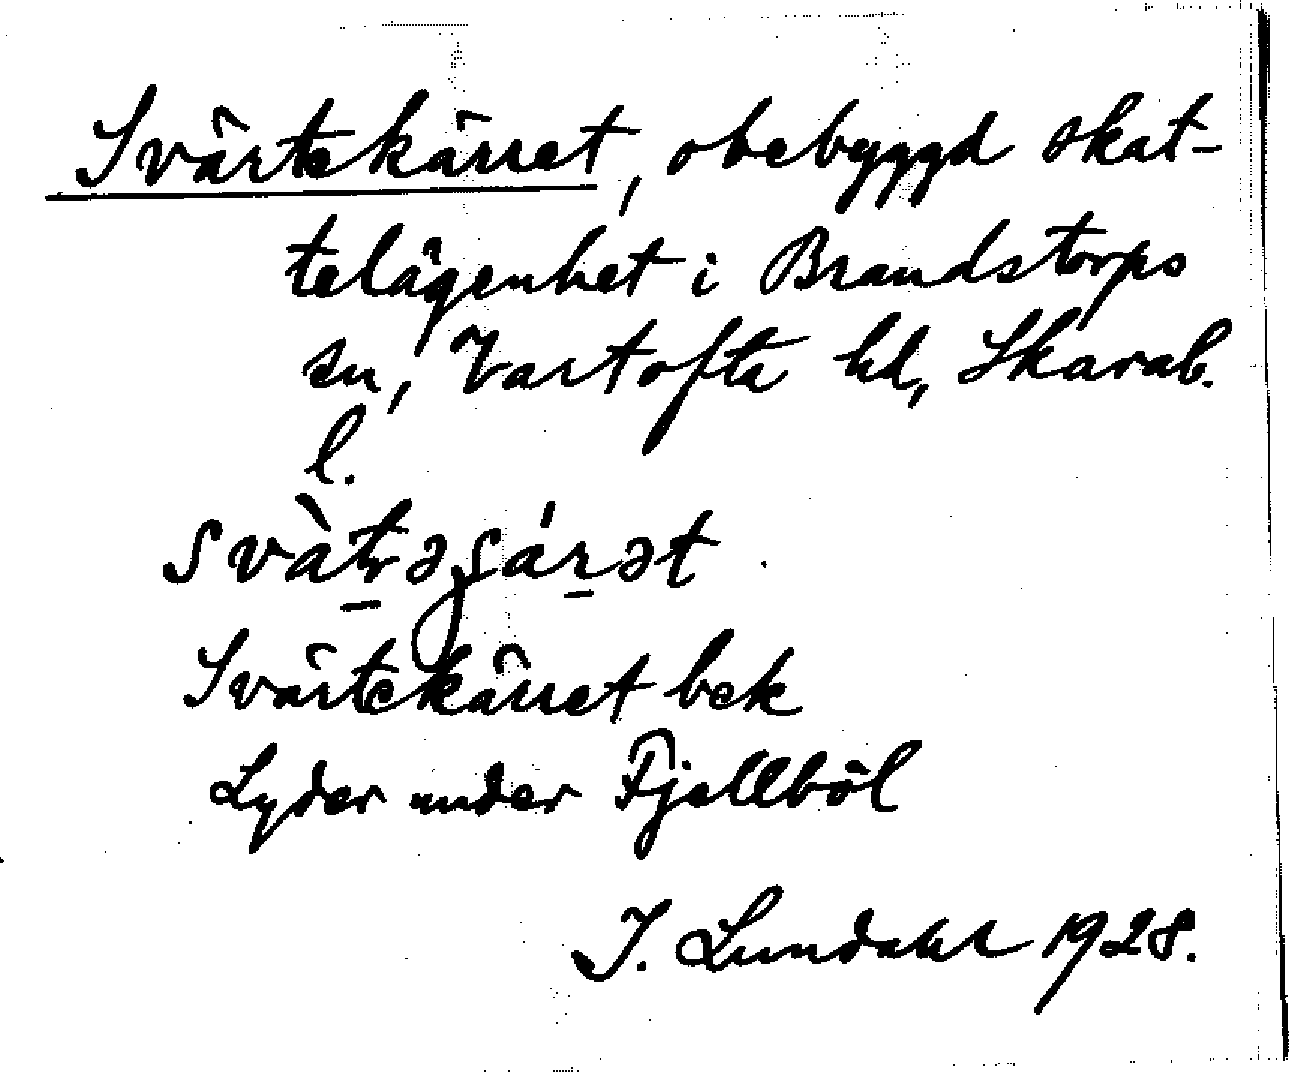 Svärtekärret, obebyggd skat-
telägenhet i Brandstorps
sn, Vartofta hd, Skarab.
l.
Svärtekärret bek
Lyder under Fjellböl
I. Lundahl 1928.